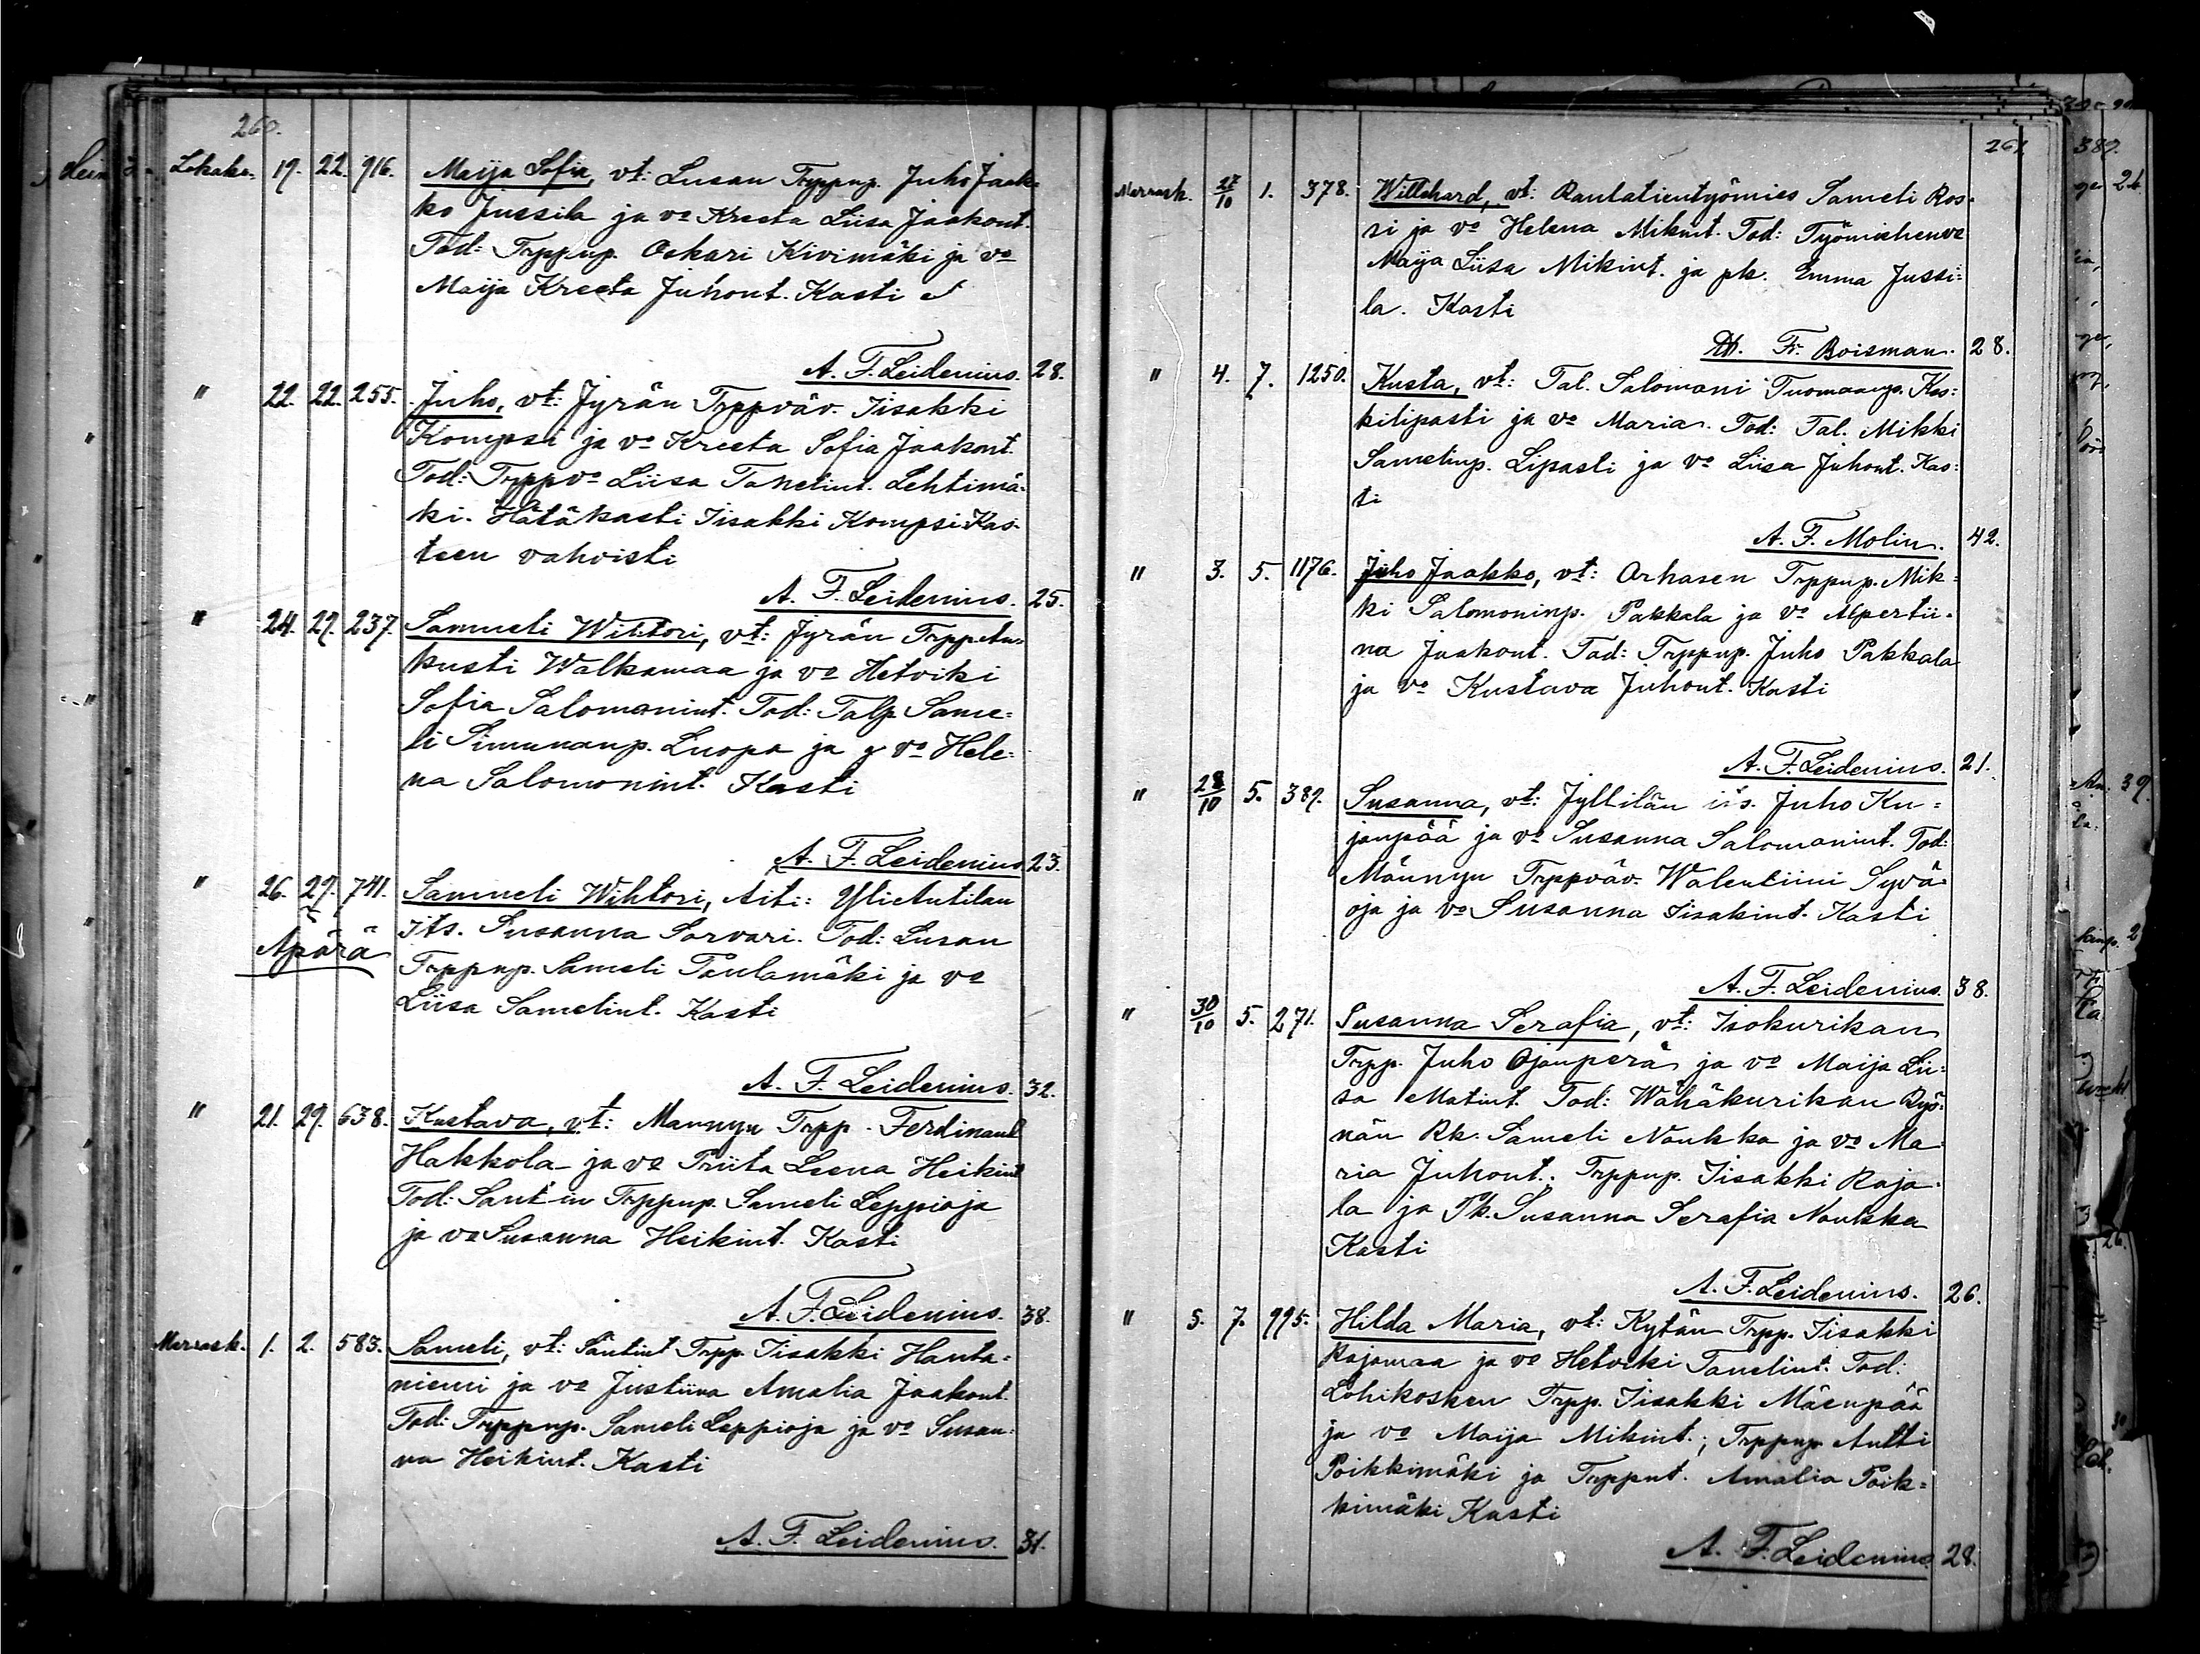 260.
Lokak. 19. 22. 916. Maija Sofia, vt: Lusan Trppup. Juho Jaak-
ko Jussila ja vo Kreeta Liisa Jaakont.
Tod: Trppup. Oskari Kivimäki ja vo
Maija Kreeta Juhont. Kasti
A. F. Leidenius. 28.
" 22. 22. 255. Juho, vt: Jyrän Trppväv. Iisakki
Kompsi ja vo Kreeta Sofia Jaakont.
Tod: Trppvo Liisa Tanelint. Lehtimä-
ki. Hätäkasti Iisakki Kompsi Kas-
teen vahvisti
A. F. Leidenius. 25.
" 24. 29. 237. Samueli Wihtori, vt: Jyrän Trpp Au-
kusti Walkamaa ja vo Hetviki
Sofia Salomonint. Tod: Talp. Same-
li Simunanp. Luopa ja vo Hele-
na Salomonint. Kasti
A. F. Leidenius 23.
" 26. 29. 741. Samueli Wihtori, Äiti: YliAntilan
Apärä
its. Susanna Sorvari. Tod: Lusan
Trppup. Sameli Paulamäki ja vo
Liisa Samelint. Kasti
A. F. Leidenius. 32.
" 21. 29. 638. Kustava, vt: Mannyn Trpp. Ferdinant
Hakkola ja vo Priita Leena Heikint
Tod: Santin Trppup. Sameli Leppioja
ja vo Susanna Heikint. Kasti
A. F. Leidenius. 38.
Marrask. 1. 2. 583. Sameli, vt: Santint Trpp. Iisakki Hauta-
niemi ja vo Justiina Amalia Jaakont.
Tod: Trppup. Sameli Leppioja ja vo Susan-
na Heikint. Kasti
A. F. Leidenius. 31.
261.
Marrask. 27/10 1. 378. Willehard, vt: Rautatientyömies Sameli Ros-
si ja vo Helena Mikint. Tod: Työmiehenvo
Maija Liisa Mikint. ja pk. Emma Jussi-
la. Kasti
Fr. Boisman. 28.
" 4. 7. 1250. Kusta, vt: Tal. Salomoni Tuomaanp. Kos-
kilipasti ja vo Maria. Tod: Tal. Mikki
Samelinp. Lipasti ja vo Liisa Juhont. Kas-
ti
A. F. Molin. 42.
" 3. 5. 1176. Juho Jaakko, vt: Orhasen Trppup. Mik-
ki Salomoninp. Pakkala ja vo Alpertii-
na Jaakont. Tod: Trppup. Juho Pakkala
ja vo Kustava Juhont. Kasti
A. F. Leidenius. 21.
" 28/10 5. 389. Susanna, vt: Jyllilän its. Juho Ku-
janpää ja vo Susanna Salomonint. Tod:
Männyn Trppväv. Walentiini Syvä-
oja ja vo Susanna Iisakint. Kasti
A. F. Leidenius. 38.
" 30/10 5. 271. Susanna Serafia, vt: Isokurikan
Trpp. Juho Ojanperä ja vo Maija Lii-
sa Matint. Tod: Wähäkurikan Ryö-
nän Rk. Sameli Noukka ja vo Ma-
ria Juhont.; Trppup. Iisakki Raja-
la ja Pk. Susanna Serafia Noukka
Kasti
A. F. Leidenius. 26.
" 5. 7. 995. Hilda Maria, vt: Kytän Trpp. Iisakki
Rajamaa ja vo Hetviki Tanelint. Tod:
Lohikosken Trpp. Iisakki Mäenpää
ja vo Maija Mikint.; Trppup Antti
Poikkimäki ja Trpput. Amalia Poik-
kimäki Kasti
A. F. Leidenius 28.